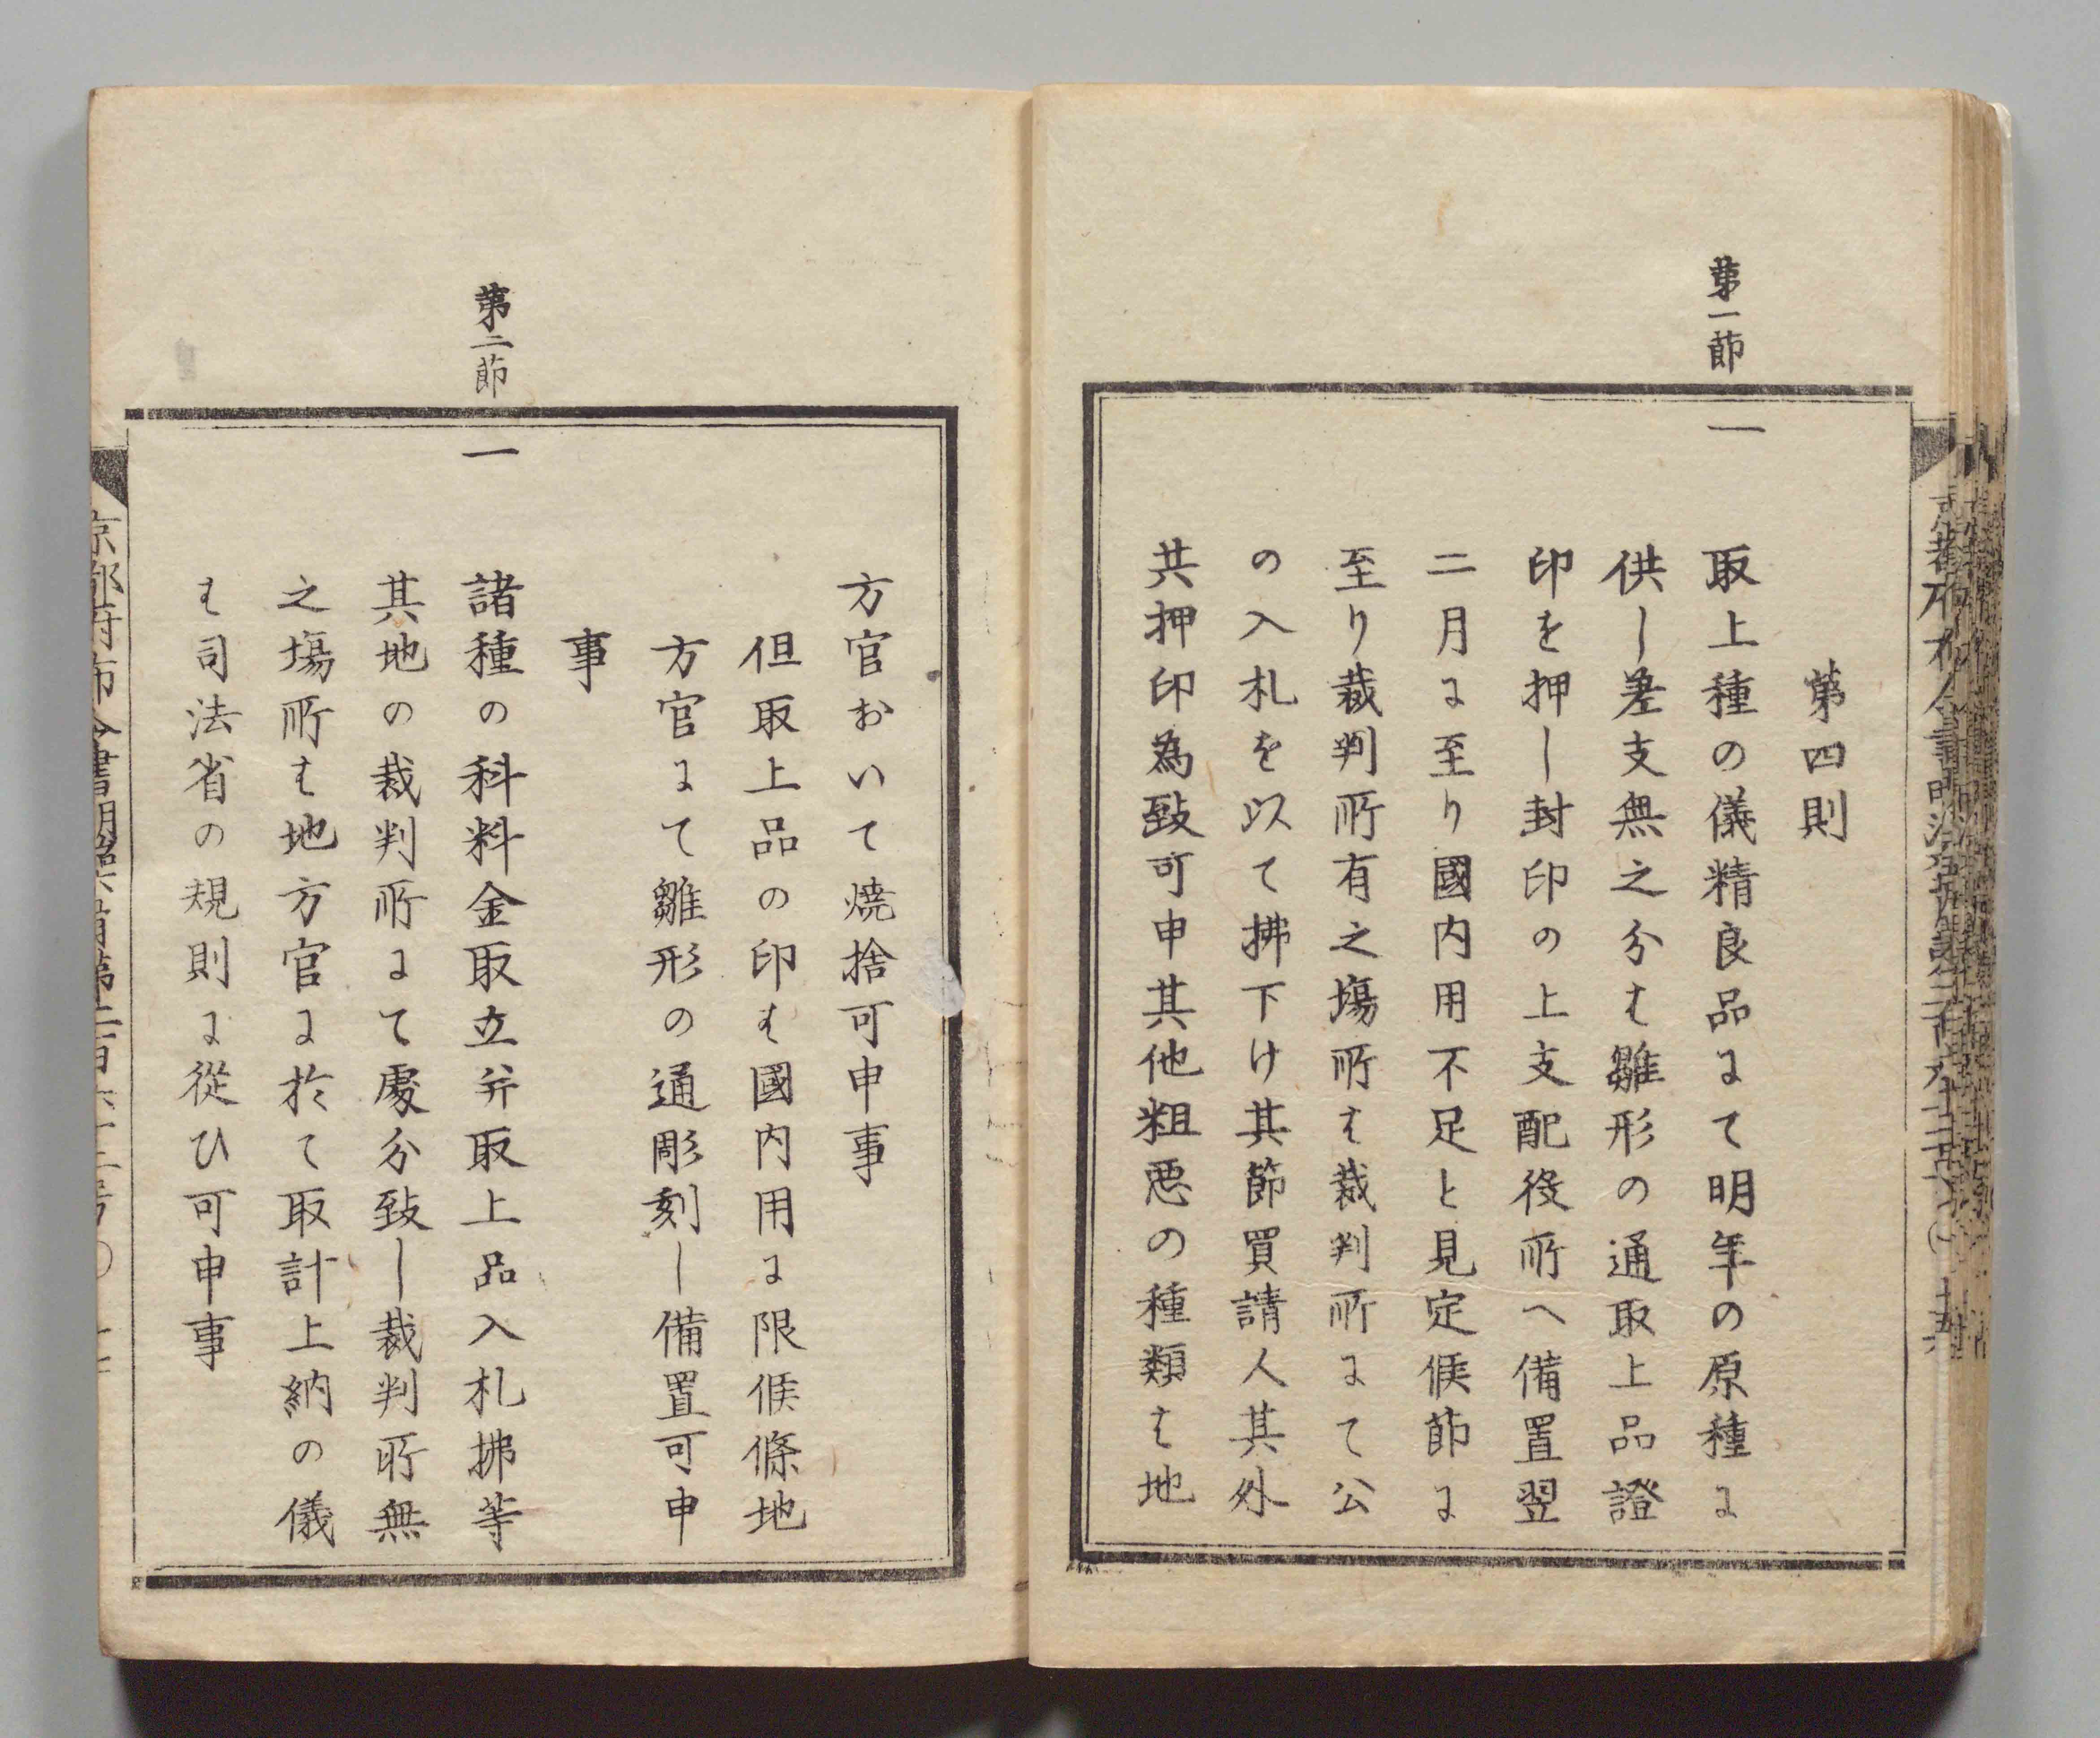 第四則
第一節
一 取上種の儀精良品にて明年の原種に
供し差支無之分は雛形の通取上品證
印を押し封印の上支配役所へ備置翌
二月に至り國内用不足と見定候節に
至り裁判所有之場所は裁判所にて公
の入札を以て拂下け其節買請人其外
共押印為致可申其他粗悪の種類は地
方官おいて焼捨可申事
但取上品の印は國内用に限候條地
方官にて雛形の通彫刻し備置可申
事
第二節
一 諸種の科料金取立并取上品入札拂等
其地の裁判所にて處分致し裁判所無
之場所は地方官に於て取計上納の儀
は司法省の規則に從ひ可申事